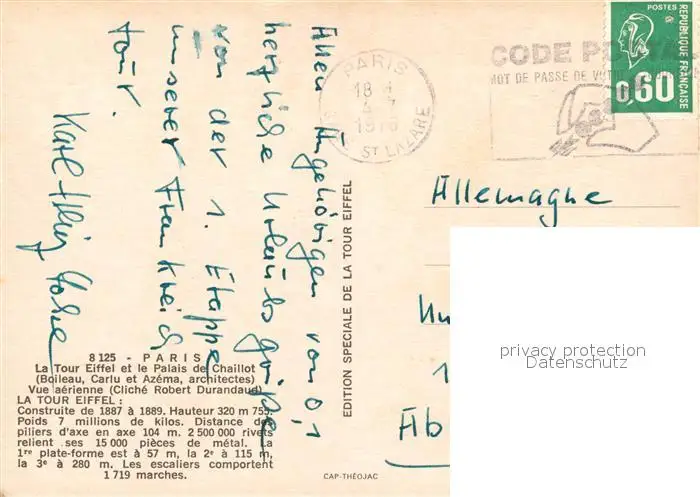 Allen Angehörigen von
herzliche Urlaubsgrüße
von der 1. Etappe
unserer Frankreich
tour.
Karl-Heinz
8 125 - PARIS
La Tour Eiffel et le Palais de Chaillot
(Boileau, Carlu et Azéma, architectes)
Vue aérienne (Cliché Robert Durandaud)
LA TOUR EIFFEL :
Construite de 1887 à 1889. Hauteur 320 m 755.
Poids 7 millions de kilos. Distance des
piliers d'axe en axe 104 m. 2 500 000 rivets
relient ses 15 000 pièces de métal. La
1re plate-forme est à 57 m, la 2e à 115 m,
la 3e à 280 m. Les escaliers comportent
1 719 marches.
EDITION SPECIALE DE LA TOUR EIFFEL
CAP-THÉOJAC
PARIS
18 H
ST LAZARE
CODE
MOT DE PASSE DE
POSTES
REPUBLIQUE FRANÇAISE
0,60
Allemagne
privacy protection
Datenschutz
1
Ab